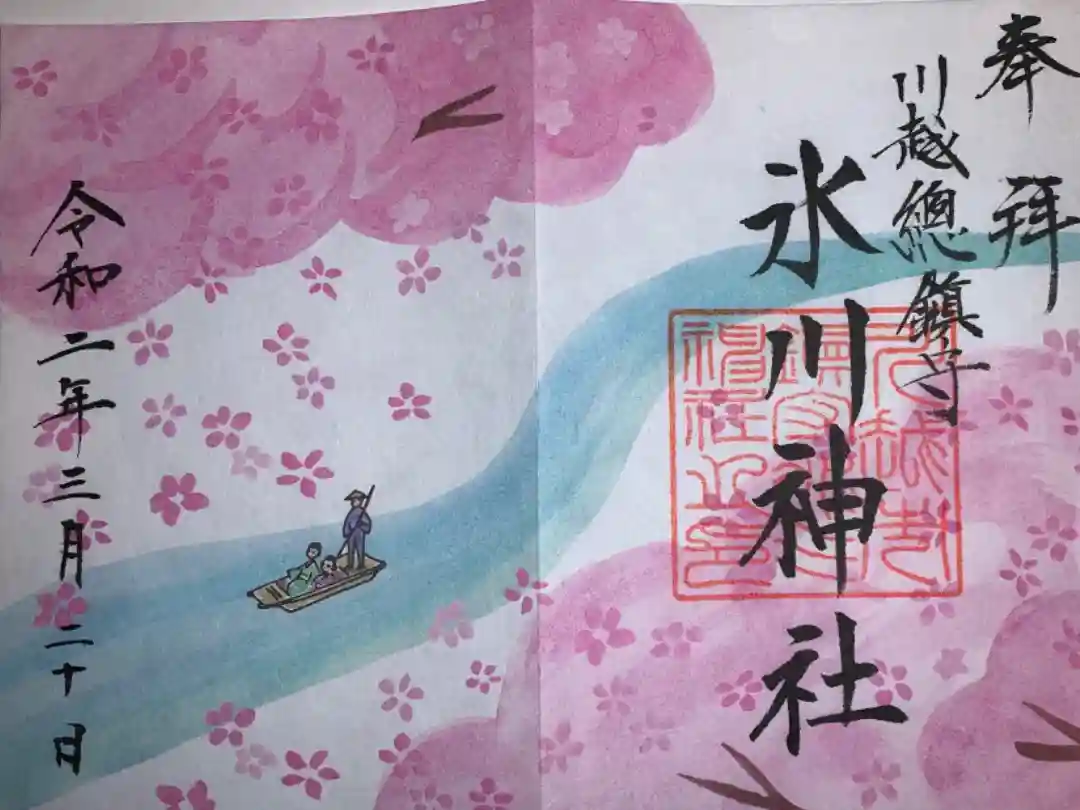 奉拜
川越總鎮守
氷川神社
令和二年三月二十日